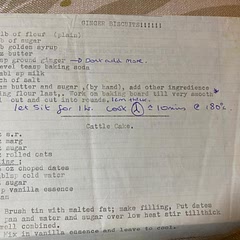 GINGER BISCUITS!!!!!!
lb of flour (plain)
of sugar
lb golden syrup
butter
sp ground ginger → Don't add more.
level teasp baking soda
tabl sp milk
ch of salt
butter and sugar ,(by hand), add other ingredients
ing flour last,. Form on baking board till very smooth
out and cut into rounds,
let sit for 1 hr. Cook 10mins @ 180°c
Cattle Cake.
s.r.
marg
sugar
rolled oats
on choped dates
tblsp cold water
sugar
sp vanilla essence
an
Brush tin with malted fat; make filling, Put dates
an and water and sugar over low heat stir tillthick
ell combined.
Mix in vanilla essence and leave to cool.